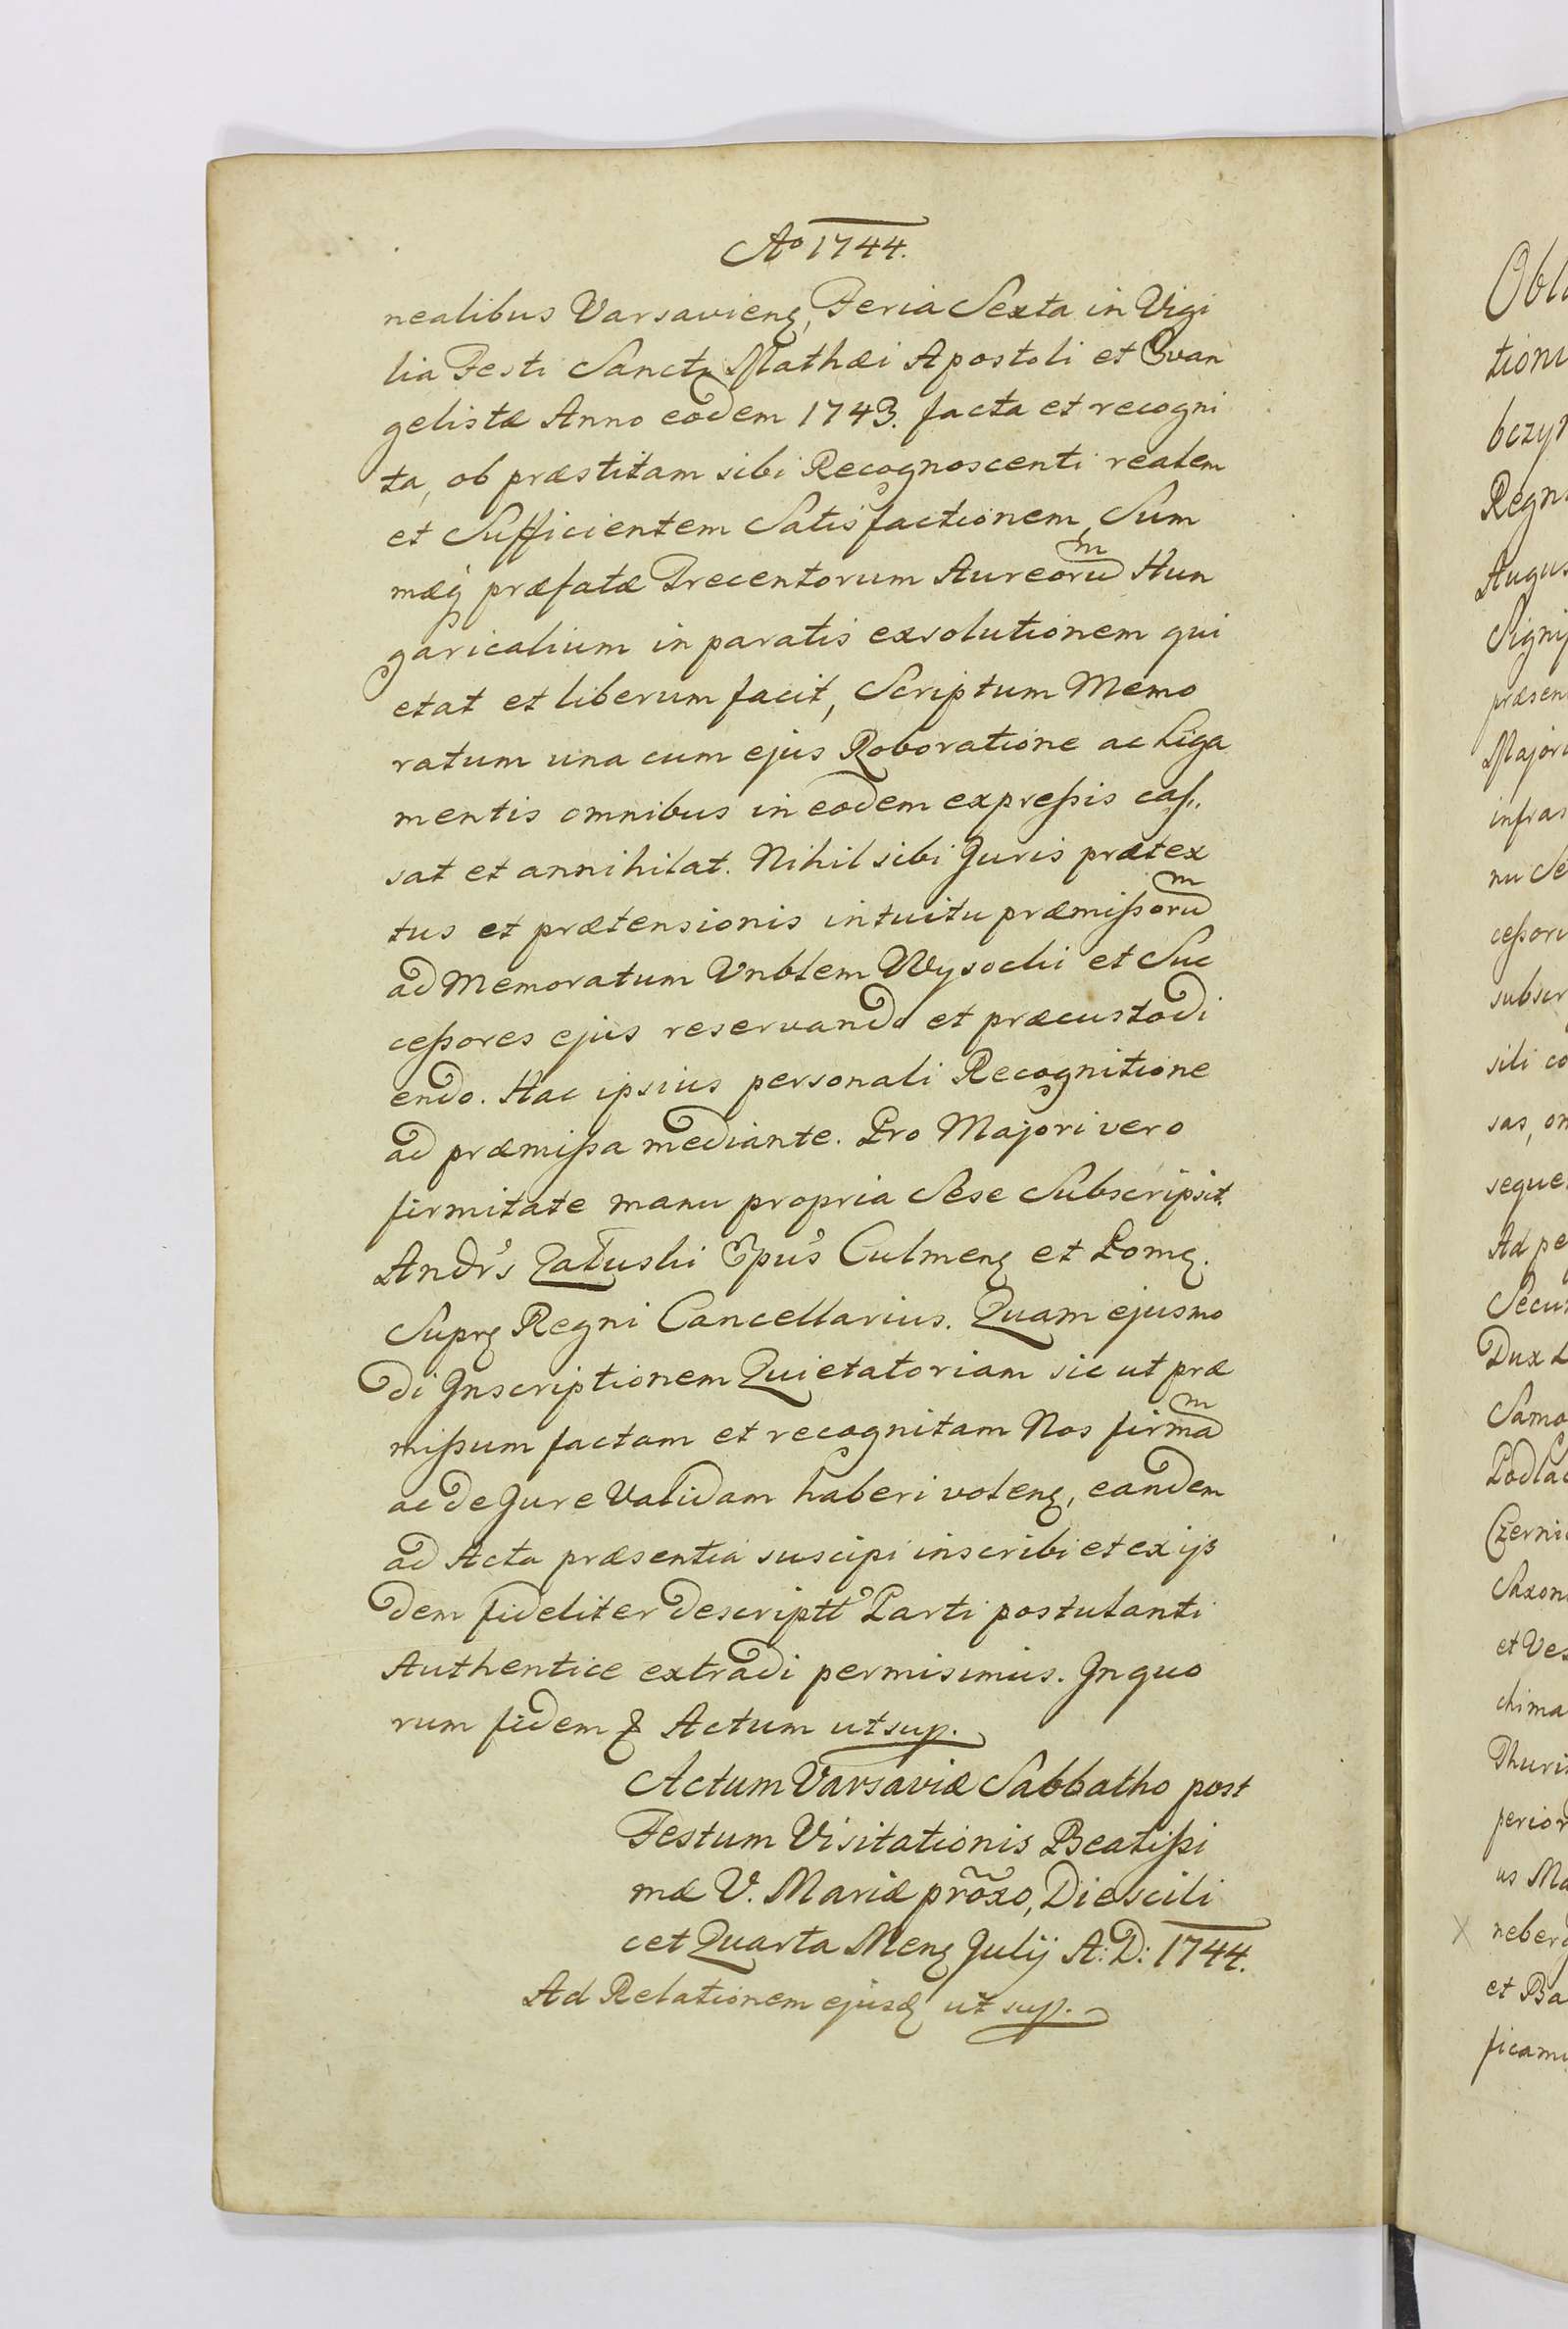 Ao 1744.
nealibus Varsavieng, Feria Sexta in Vigi
lia Festi Sancti Mathæi Apostoli et Evan
gelistæ Anno eodem 1743. facta et recogni
ta, ob præstitam sibi Recognoscenti realem
et Sufficientem Satisfactionem, Sum
mæq præfatæ Trecentorum Aureorum Hun
garicalium in paratis exsolutionem qui
etat et liberum facit, Scriptum Memo
ratum una cum ejus Roboratione ac Liga
mentis omnibus in eodem expreßis caß.
sat et annihilat. Nihil sibi Juris prætex
tus et prætensionis intuitu præmißorum
ad Memoratum Vnblem Wysocki et Suc
ceßores ejus reservando et præcustodi
endo. Hac ipsius personali Recognitione
ad præmißa mediante. Pro Majori vero
firmitate manu propria Sese Subscripsit.
Andrs Załuski Epus Culmeng et Pomg.
Suprg Regni Cancellarius. Quam ejusmo
di Inscriptionem Quietatoriam sic ut præ
mißum factam et recognitam Nos firmam
ac de Jure Validam haberi voleng, eandem
ad Acta præsentia suscipi inscribi et ex ijs
dem fideliter descriptt Parti postulanti
Authentice extradi permisimus. In quo
rum fidem Actum ut sup.
Actum Varsaviæ Sabbatho post
Festum Visitationis Beatißi
mæ V. Mariæ prõxo, Die scili
cet Quarta Meng Julij A: D: 1744.
Ad Relationem ejusd ut sup.
Obla
bczyn
Regni
Augus
Signif
præsen
Majori
infras
nu Se
ceßori
subscr
sili co
sas, om
seque
Ad pe
Secun
Dux L
Samo
Podlac
Czernic
Saxon
et Ves
chima
Thuri
perior
us Ma
neberg
et Ba
ficamu